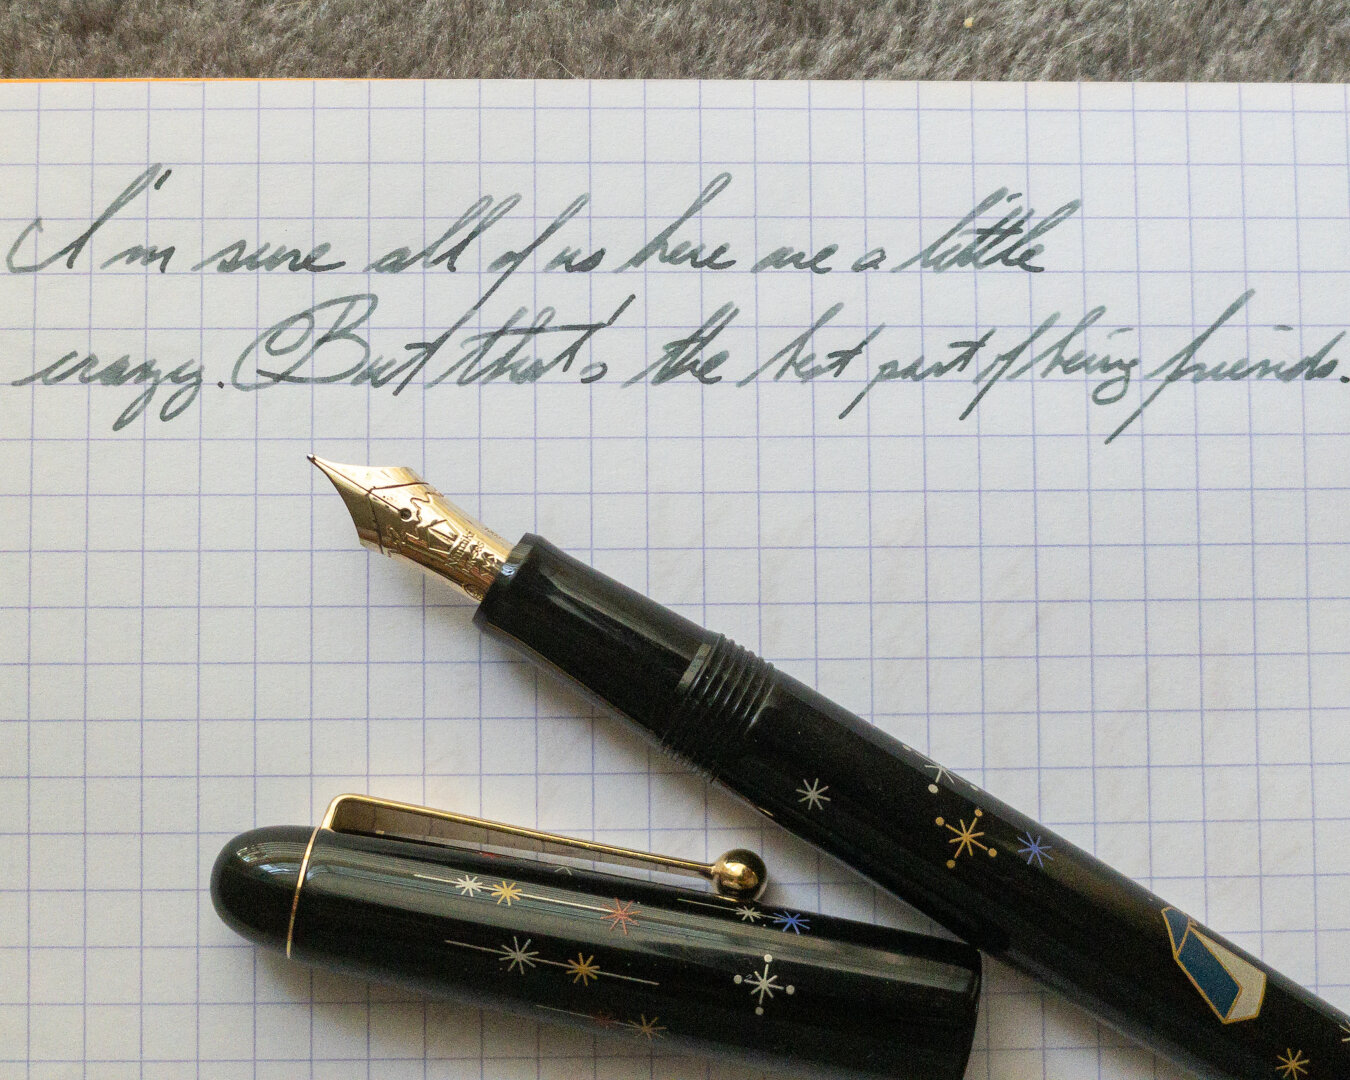 I'm sure all of us here are a little
crazy. But that's the best part of being friends.